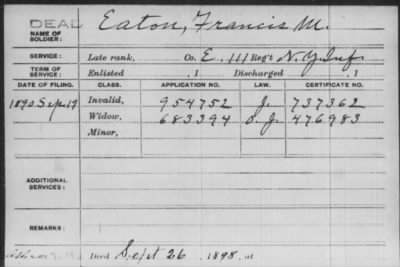 DEAD
Eaton, Francis M.
NAME OF SOLDIER:
SERVICE: Late rank, Co. E. 111 Reg't N.Y. Inf.
TERM OF SERVICE: Enlisted , 1 Discharged , 1
DATE OF FILING. CLASS. APPLICATION NO. LAW. CERTIFICATE NO.
1890 Sep. 19 Invalid, 954752 J. 737362
Widow, 683394 O. J. 476983
Minor,
ADDITIONAL SERVICES:
REMARKS:
Died Sept 26, 1898, at